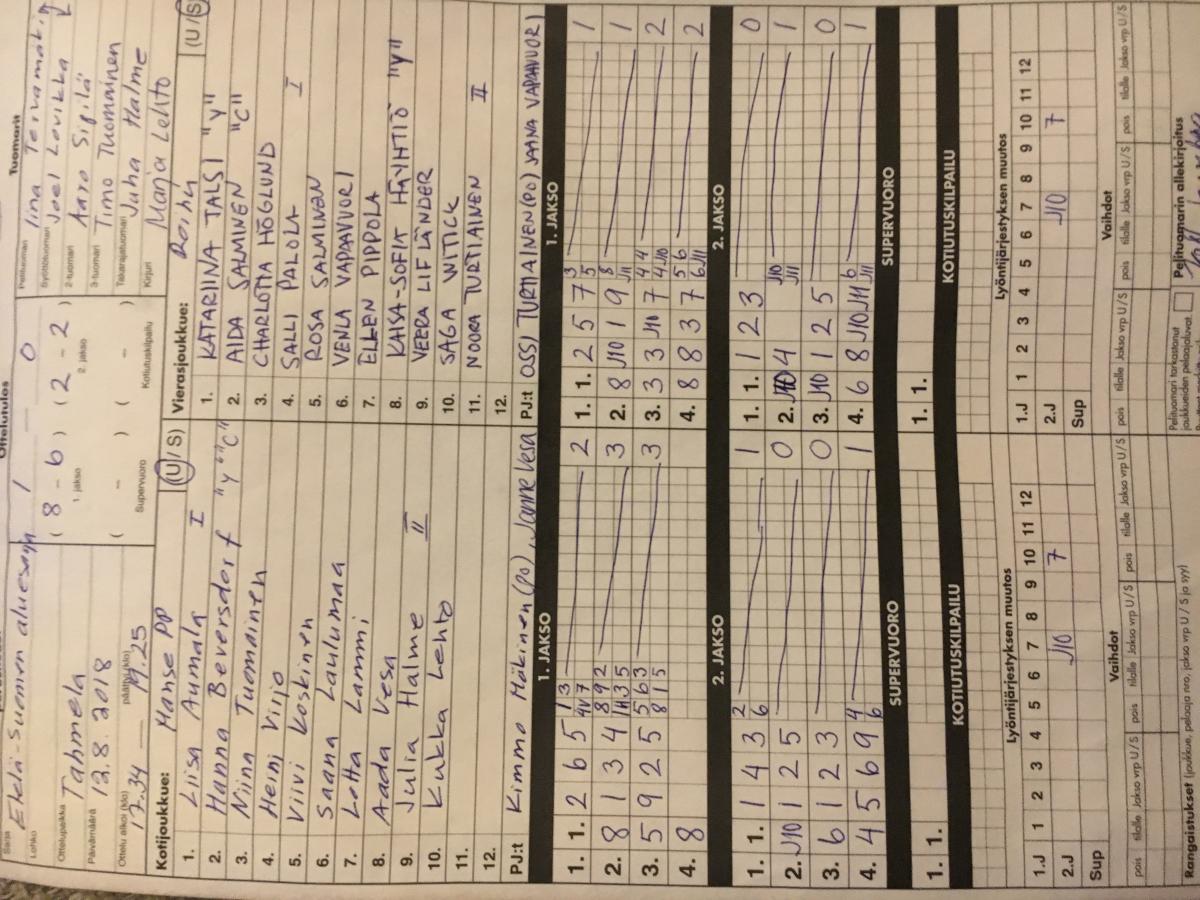 Ottelutulos
Sarja
Etelä-Suomen aluesarja
1 - 0
Lohko
( 8 - 6 ) ( 2 - 2 )
1. jakso 2. jakso
Ottelupaikka
Tahmela
Päivämäärä
12.8.2018
( - ) ( - )
Supervuoro Kotiutuskilpailu
Ottelu alkoi (klo) päättyi (klo)
17.34 19.25
Tuomarit
Pelituomari
Syöttötuomari
Joel Lovikka
2-tuomari
Aaro Sipilä
3-tuomari
Timo Tuomainen
Takarajatuomari
Juha Halme
Kirjuri
Marja Lehto
Kotijoukkue: Manse PP (U/S)
1. Liisa Aumala I
2. Hanna Beversdorf "y" "C"
3. Niina Tuomainen
4. Heini Virjo
5. Viivi Koskinen
6. Saana Laulumaa
7. Lotta Lammi
8. Aada Vesa
9. Julia Halme II
10. Kukka Lehto
11.
12.
PJ:t Kimmo Mäkinen (po), Janne Vesa
Vierasjoukkue: Roihu (U/S)
1. KATARIINA TALSI "Y"
2. AIDA SALMINEN "C"
3. CHARLOTTA HÖGLUND
4. SALLI PALOLA I
5. ROSA SALMINEN
6. VENLA VAPAVUORI
7. ELLEN PIPPOLA
8. KAISA-SOFIA HÄYHTIÖ "Y"
9. VEERA LIFLÄNDER
10. SAGA WITICK
11. NOORA TURTIAINEN II
12.
PJ:t OSSI TURTIAINEN (PO) JAANA VAPAAVUORI
1. JAKSO
1. 1. 2 6 5 4V 7 1 3 2
2. 8 1 3 4 8 9 2 3
3. 5 9 2 5 5 6 3 8 1 5 3
4. 8
1. JAKSO
1. 1. 2 5 7 5 3 1
2. 8 J10 1 9 J11 8 1
3. 3 3 J10 7 4 J10 4 4 2
4. 8 8 3 7 6 J11 5 6 2
2. JAKSO
1. 1. 1 4 3 6 2 1
2. J10 1 2 5 0
3. 6 1 2 3 0
4. 4 5 6 9 6 4 1
2. JAKSORO
1. 1. 1 2 3 0
2. J10 4 J11 J10 1
3. J10 1 2 5 0
4. 6 8 J10 J11 J11 6 1
SUPERVUORO
1. 1.
SUPERVUORO
1. 1.
KOTIUTUSKILPAILU
KOTIUTUSKILPAILU
Lyöntijärjestyksen muutos
1.J 1 2 3 4 5 6 7 8 9 10 11 12
2.J J10 7
Sup
Lyöntijärjestyksen muutos
1.J 1 2 3 4 5 6 7 8 9 10 11 12
2.J J10 7
Sup
Vaihdot
pois tilalle Jakso vrp U/S pois tilalle Jakso vrp U/S pois tilalle Jakso vrp U/S
Vaihdot
pois tilalle Jakso vrp U/S pois tilalle Jakso vrp U/S pois tilalle Jakso vrp U/S
Rangaistukset (joukkue, pelaaja nro, jakso vrp U / S ja syy)
Pelituomari tarkastanut
joukkueiden pelaajaluvat
Pelituomarin allekirjoitus